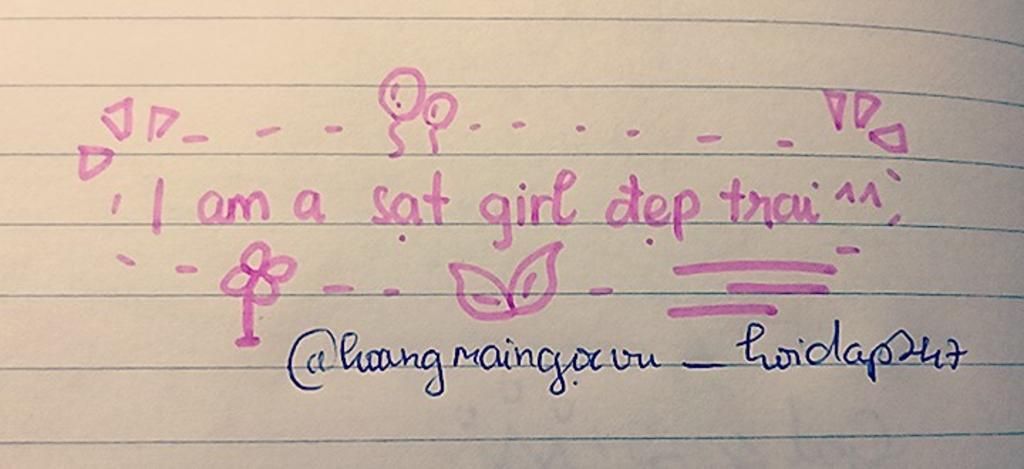 I am a sạt girl đẹp trai ^^
@hoangmaingọcvu _ hoidap247